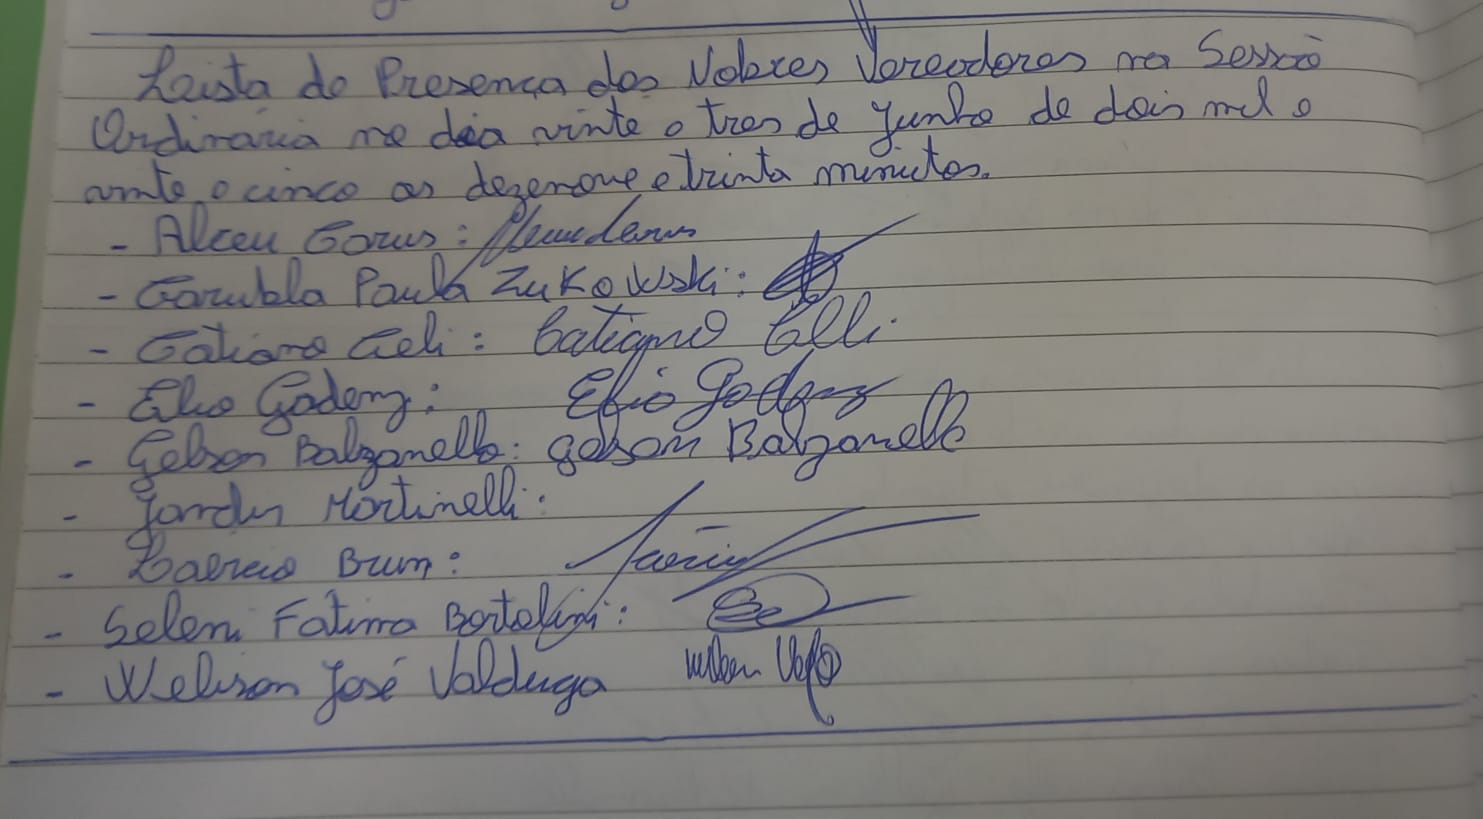 Lista de Presença dos Nobres Vereadores na Sessão
Ordinária no dia vinte e tres de Junho de dois mil e
vinte e cinco as dezenove e trinta minutos.
- Alceu :
- Paula Zukowski:
- Catiano Celi: Catiano Celli
- Elio Godenz: Elio Godenz
- Gelson Balzanello: Gelson Balzanello
- Martinelli:
- Brum:
- Seleni Fatima Bortolini:
- Welison José Valduga